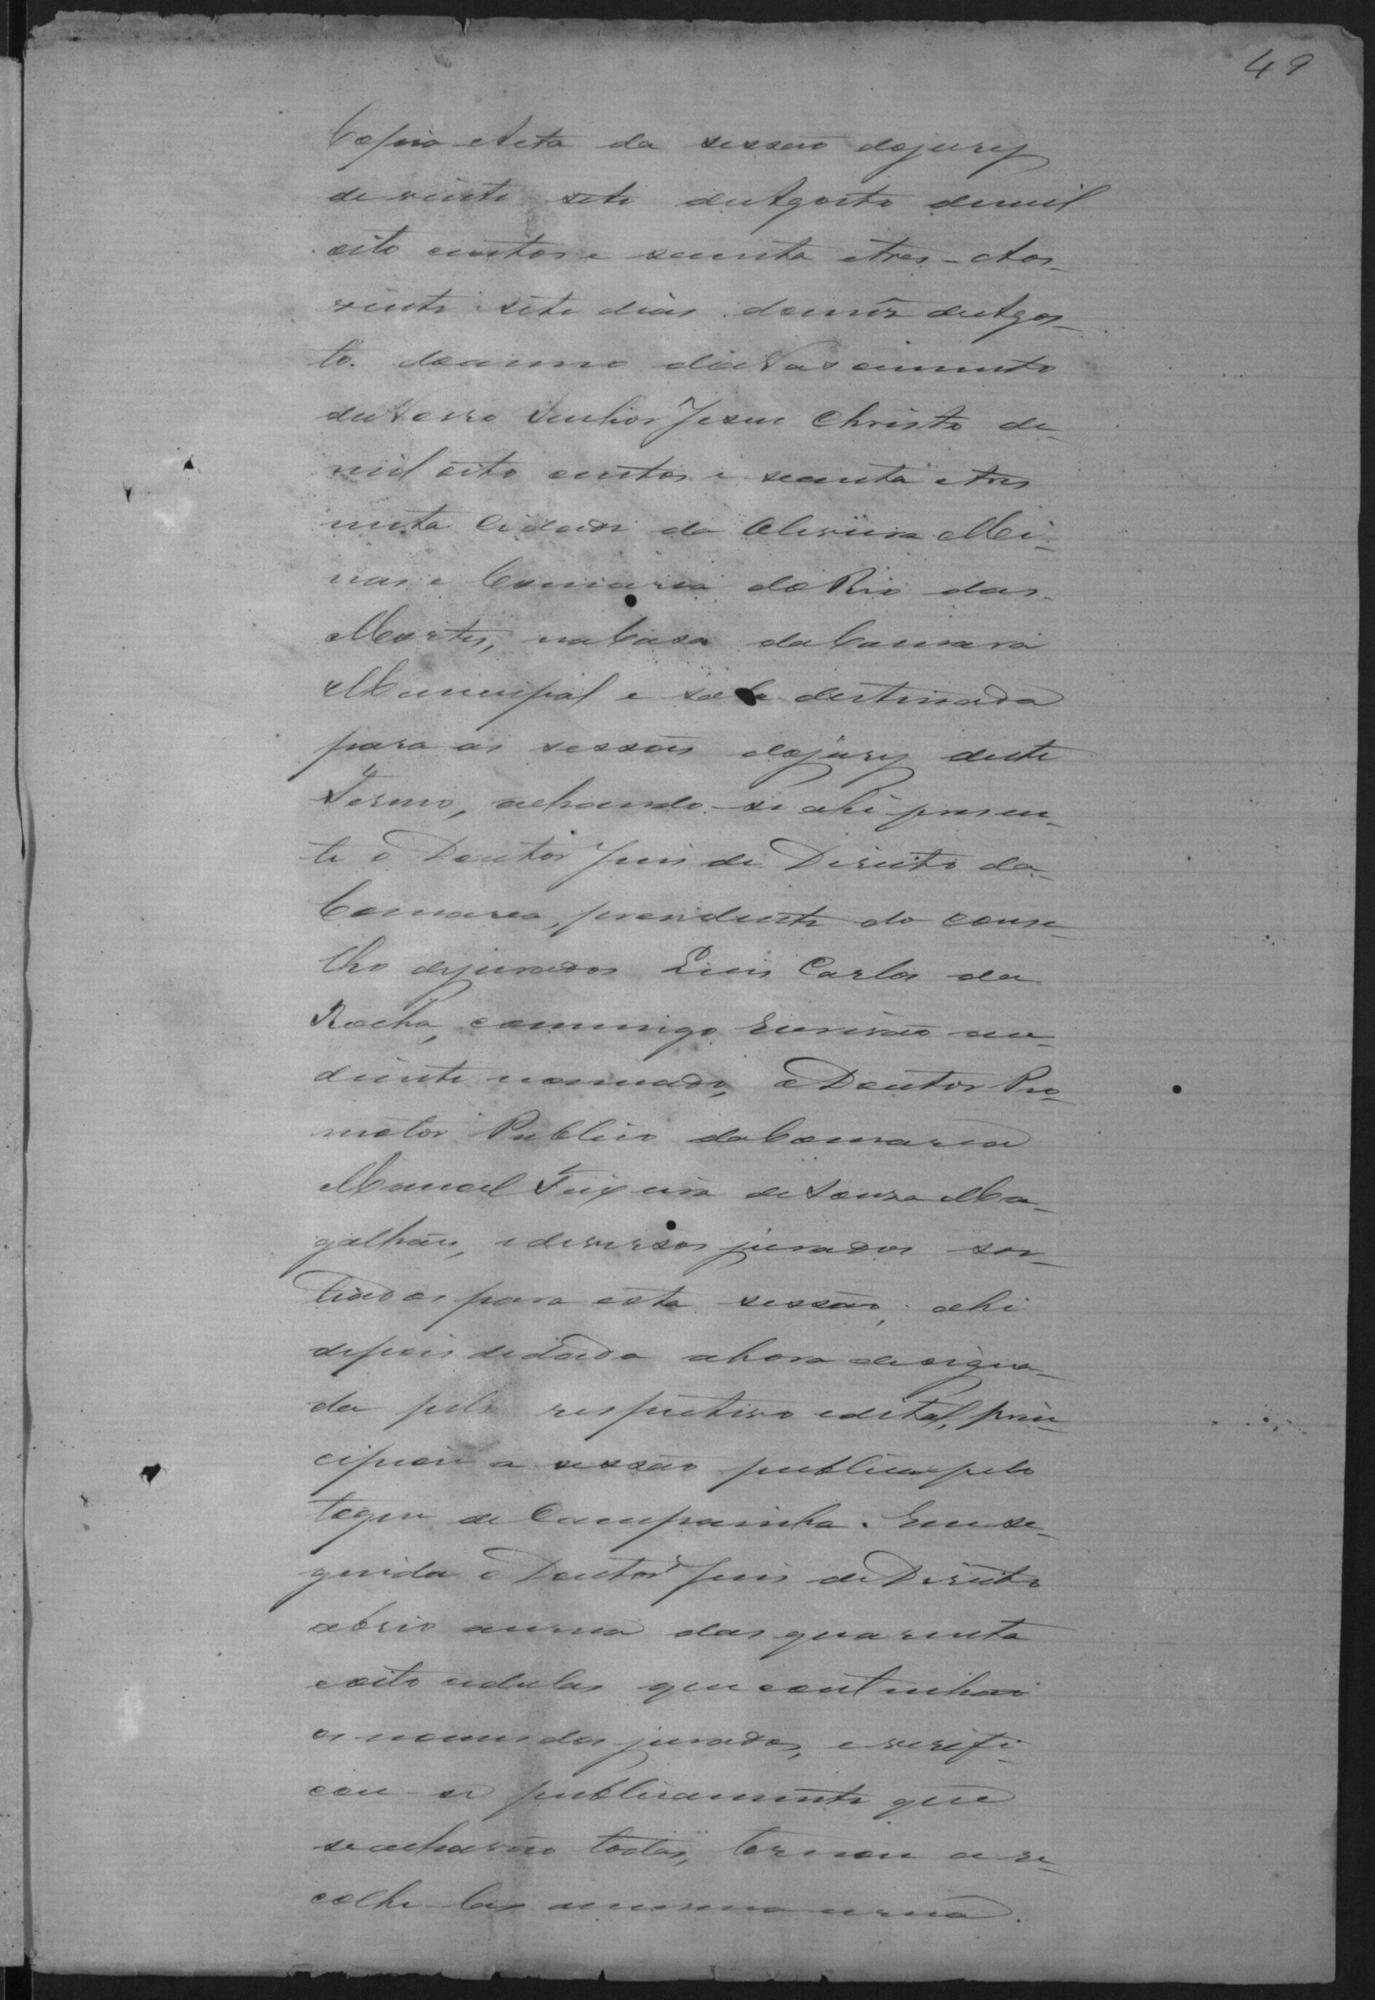 49
Copia Acta da sessão do jury
de vinte sete de Agosto de mil
oito centos e secenta e tres - Aos
vinte sete dias do mez de Agos-
to do anno do Nascimento
de Nosso Senhor Jesus Christo de
mil oito centos e secenta e tres
nesta Cidade da Oliveira Mi-
nas e Comarca do Rio das
Mortes, na Casa da Camara
Municipal e sala destinada
para as sessões do jury deste
Termo, achando-se ahi presen-
te o Doutor Juis de Direito da
Comarca, presidente do conse-
lho de jurados Luis Carlos da
Rocha, commigo Escrivão au-
diante nomeado, o Doutor Pro-
motor Publico da Comarca
Manoel Teixeira de Souza Ma-
galhães, e diversos jurados sor-
tiados para esta sessão, ahi
depois de dada a hora designa-
da pelo respectivo edital, prin-
cipiou a sessão publica pelo
toque de Campainha. Em se-
guida o Doutor Juis de Direito
abrio a urna das quarenta
e oito cedulas que continhão
os nomes dos jurados, e verifi-
cou se publicamente que
se acharão todas, tornou a re-
colhe-las a mesma urna.